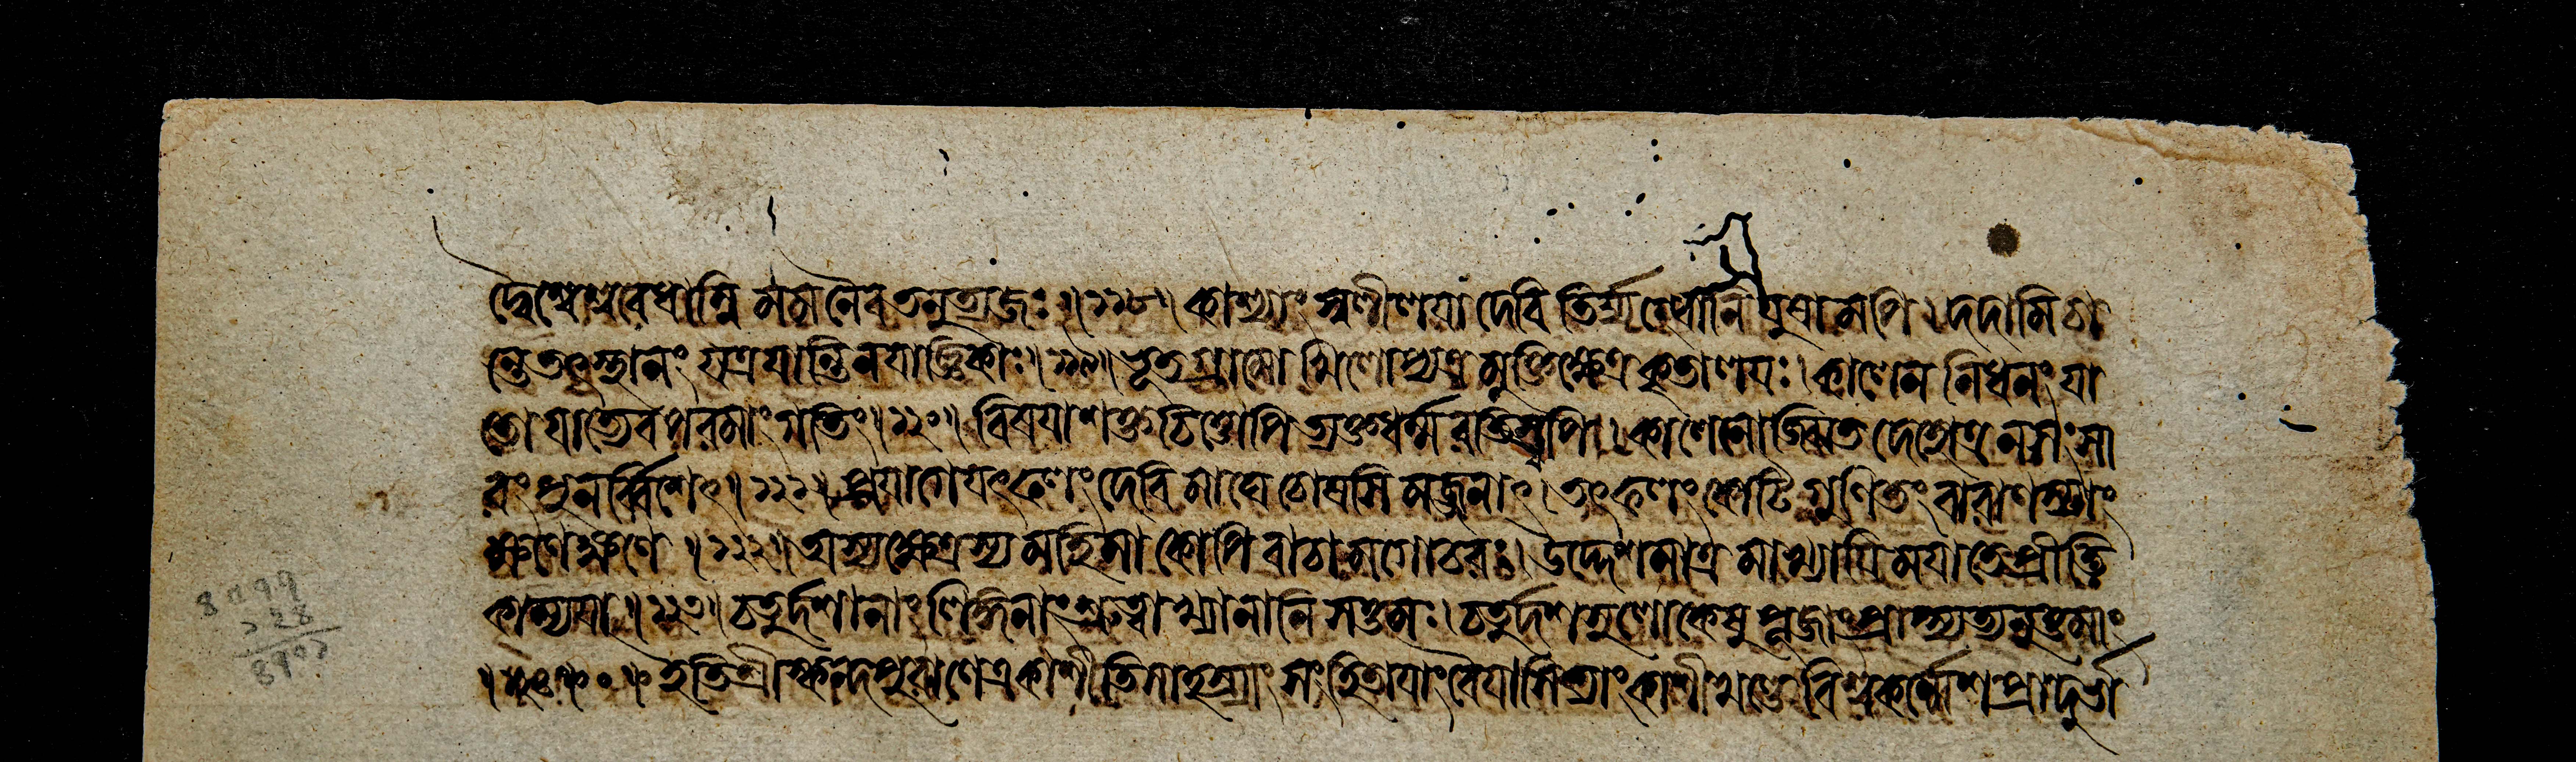 দ্বৈশ্বেশ্বরেধাম্নি মমানৈবতনুত্যজঃ॥১১৮॥ কাশ্যাং স্বলীলয়া দেবি তির্য্যগ্যোনিযুষামপি। দদামি চা
ন্তে তৎস্থানং যত্র যান্তি ন যাজ্ঞিকাঃ॥১১৯॥ ভূতগ্রামোখিলোপ্যত্র মুক্তিক্ষেত্রে কৃতালয়ঃ। কালেন নিধনং যা
তো যাত্যেব পরমাং গতিং॥১২০॥ বিষয়াশক্তচিত্তোপি ত্যক্তধর্ম্মরতিস্ত্বপি। কালেনোজ্ঝিত দেহোত্র ন সংসা
রং পুনর্ব্বিশেৎ॥১২১॥ প্রয়াগে যৎফলং দেবি মাঘে চোষসি মজ্জনাৎ। তৎফলং কোটিগুণিতং বারাণস্যাং
ক্ষণে ক্ষণে॥১২২॥ অস্য ক্ষেত্রস্য মহিমা কোপি বাচামগোচরঃ। উদ্দেশমাত্রমাখ্যায়ি ময়া তে প্রীতি
কাম্যয়া॥১২৩॥ চতুর্দশানাং লিঙ্গানাং শ্রুত্বাখ্যানানি সত্তমঃ। চতুর্দশসু লোকেষু পূজাং প্রাপ্স্যত্যনুত্তমাং
॥ ইতি শ্রীস্কন্দপুরাণে একাশীতিসাহস্র্যাং সংহিতায়াং বৈয়াসিক্যাং কাশীখণ্ডে বিশ্বকর্ম্মেশপ্রাদুর্ভা